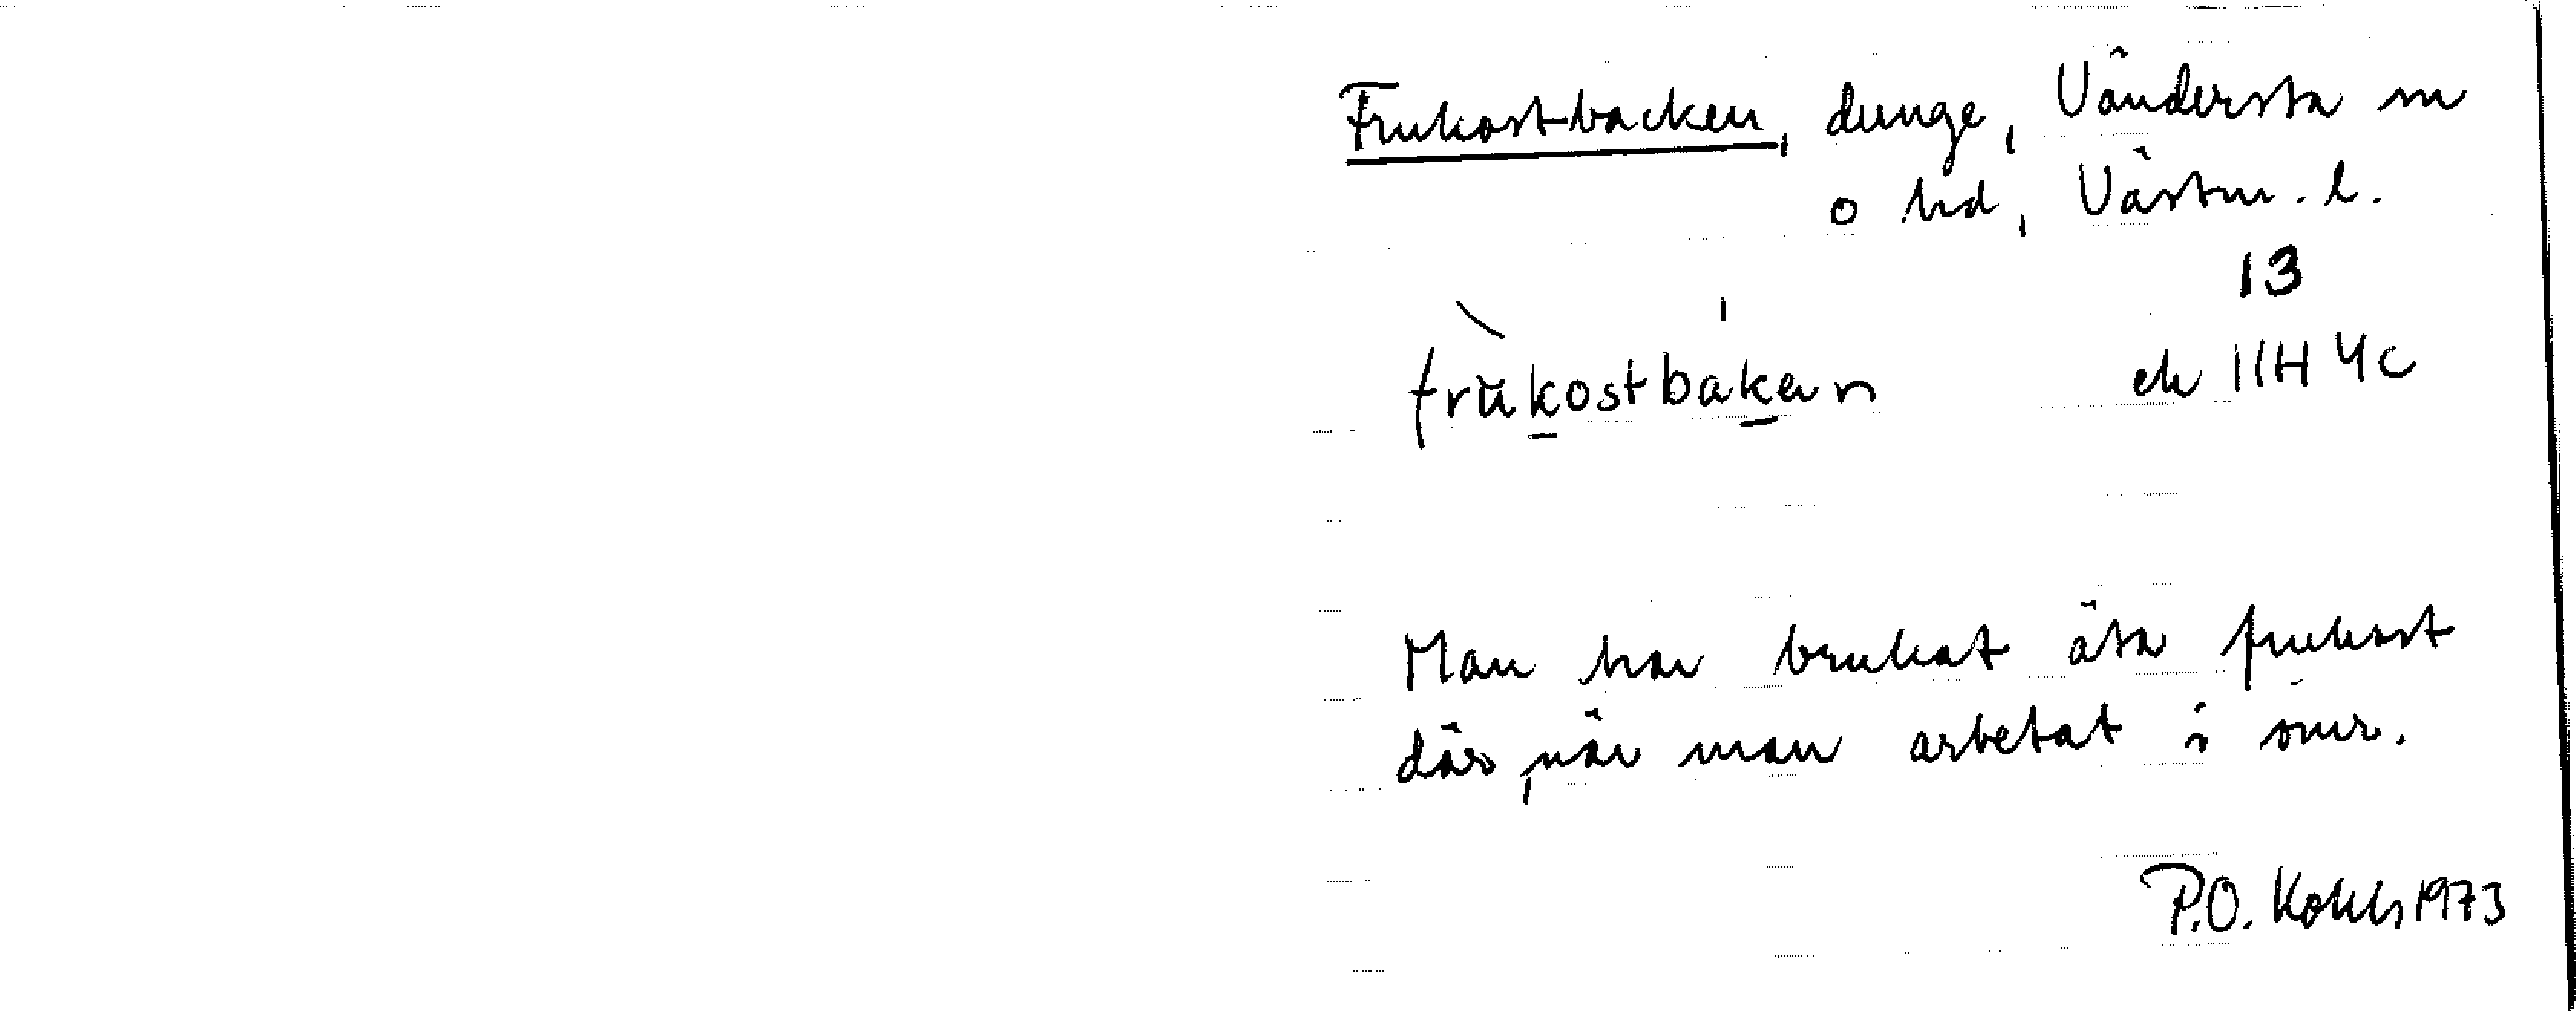 Frukostbacken, dunge, Vändersta m
o hd, Västm. l.
13
frùkostbàken ek 11H 4c
Man har brukat äta frukost
där, när man arbetat i omr.
P.O. Kohls 1973